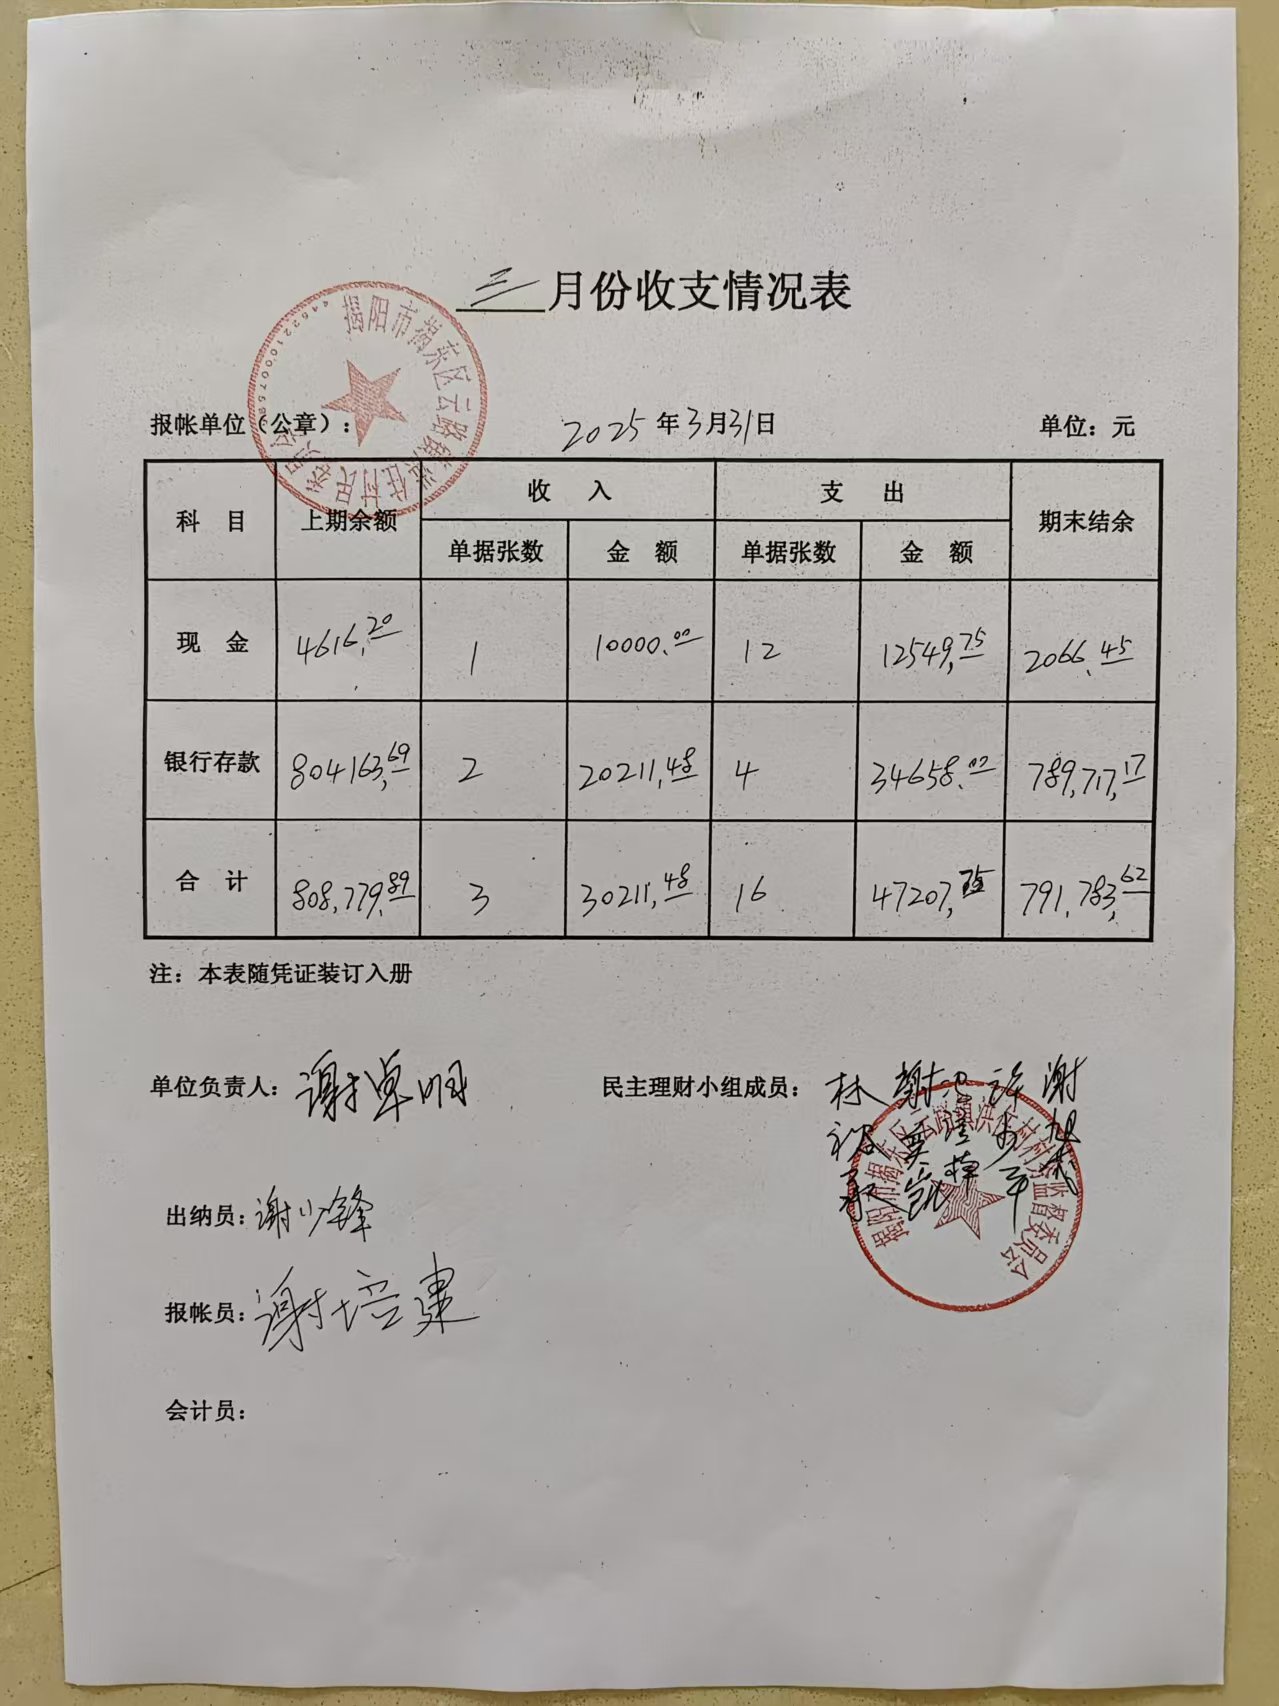 三月份收支情况表
揭阳市揭东区云路镇洪住村民委员会
报帐单位（公章）： 2025年3月31日 单位：元
科目 上期余额 收入 支出 期末结余
单据张数 金额 单据张数 金额
现金 4616.20 1 10000.00 12 12549.75 2066.45
银行存款 804163.69 2 20211.48 4 34658.00 789,717.17
合计 808,779.89 3 30211.48 16 47207.75 791,783.62
注：本表随凭证装订入册
单位负责人：谢卓明 民主理财小组成员：
揭阳市揭东区云路镇洪住村村务监督委员会
出纳员：谢少锋
报帐员：谢培建
会计员：